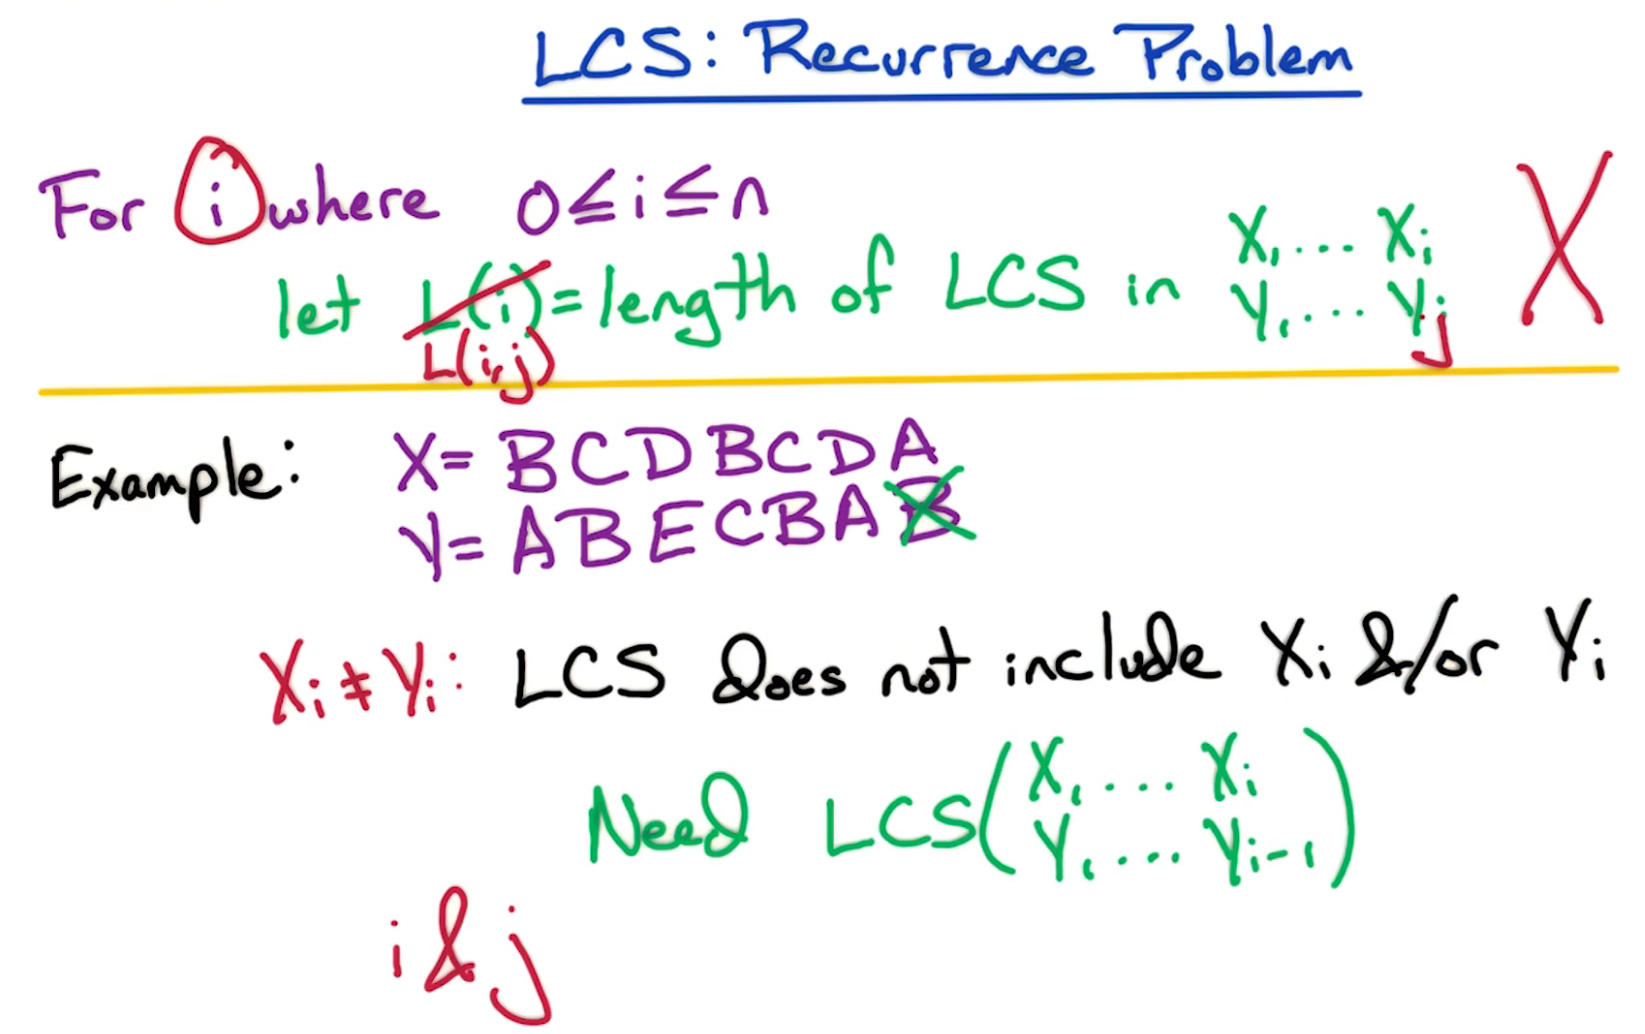 LCS: Recurrence Problem
For i where 0≤i≤n
let L(i)=length of LCS in X₁.... Xᵢ
Y₁.... Yⱼ
X
L(i,j)
Example: X= BCDBCDA
Y= ABECBAB
Xᵢ≠Yᵢ: LCS does not include Xᵢ &/or Yᵢ
Need LCS(X₁.... Xᵢ
Y₁.... Yᵢ₋₁)
i & j